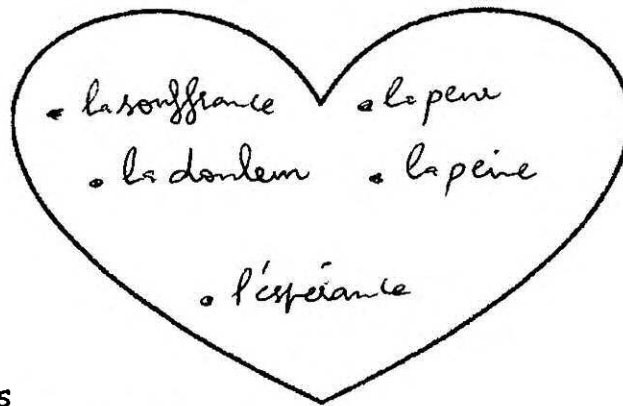 • la souffrance • la peur
• la douleur • la peine
• l'espérance
s